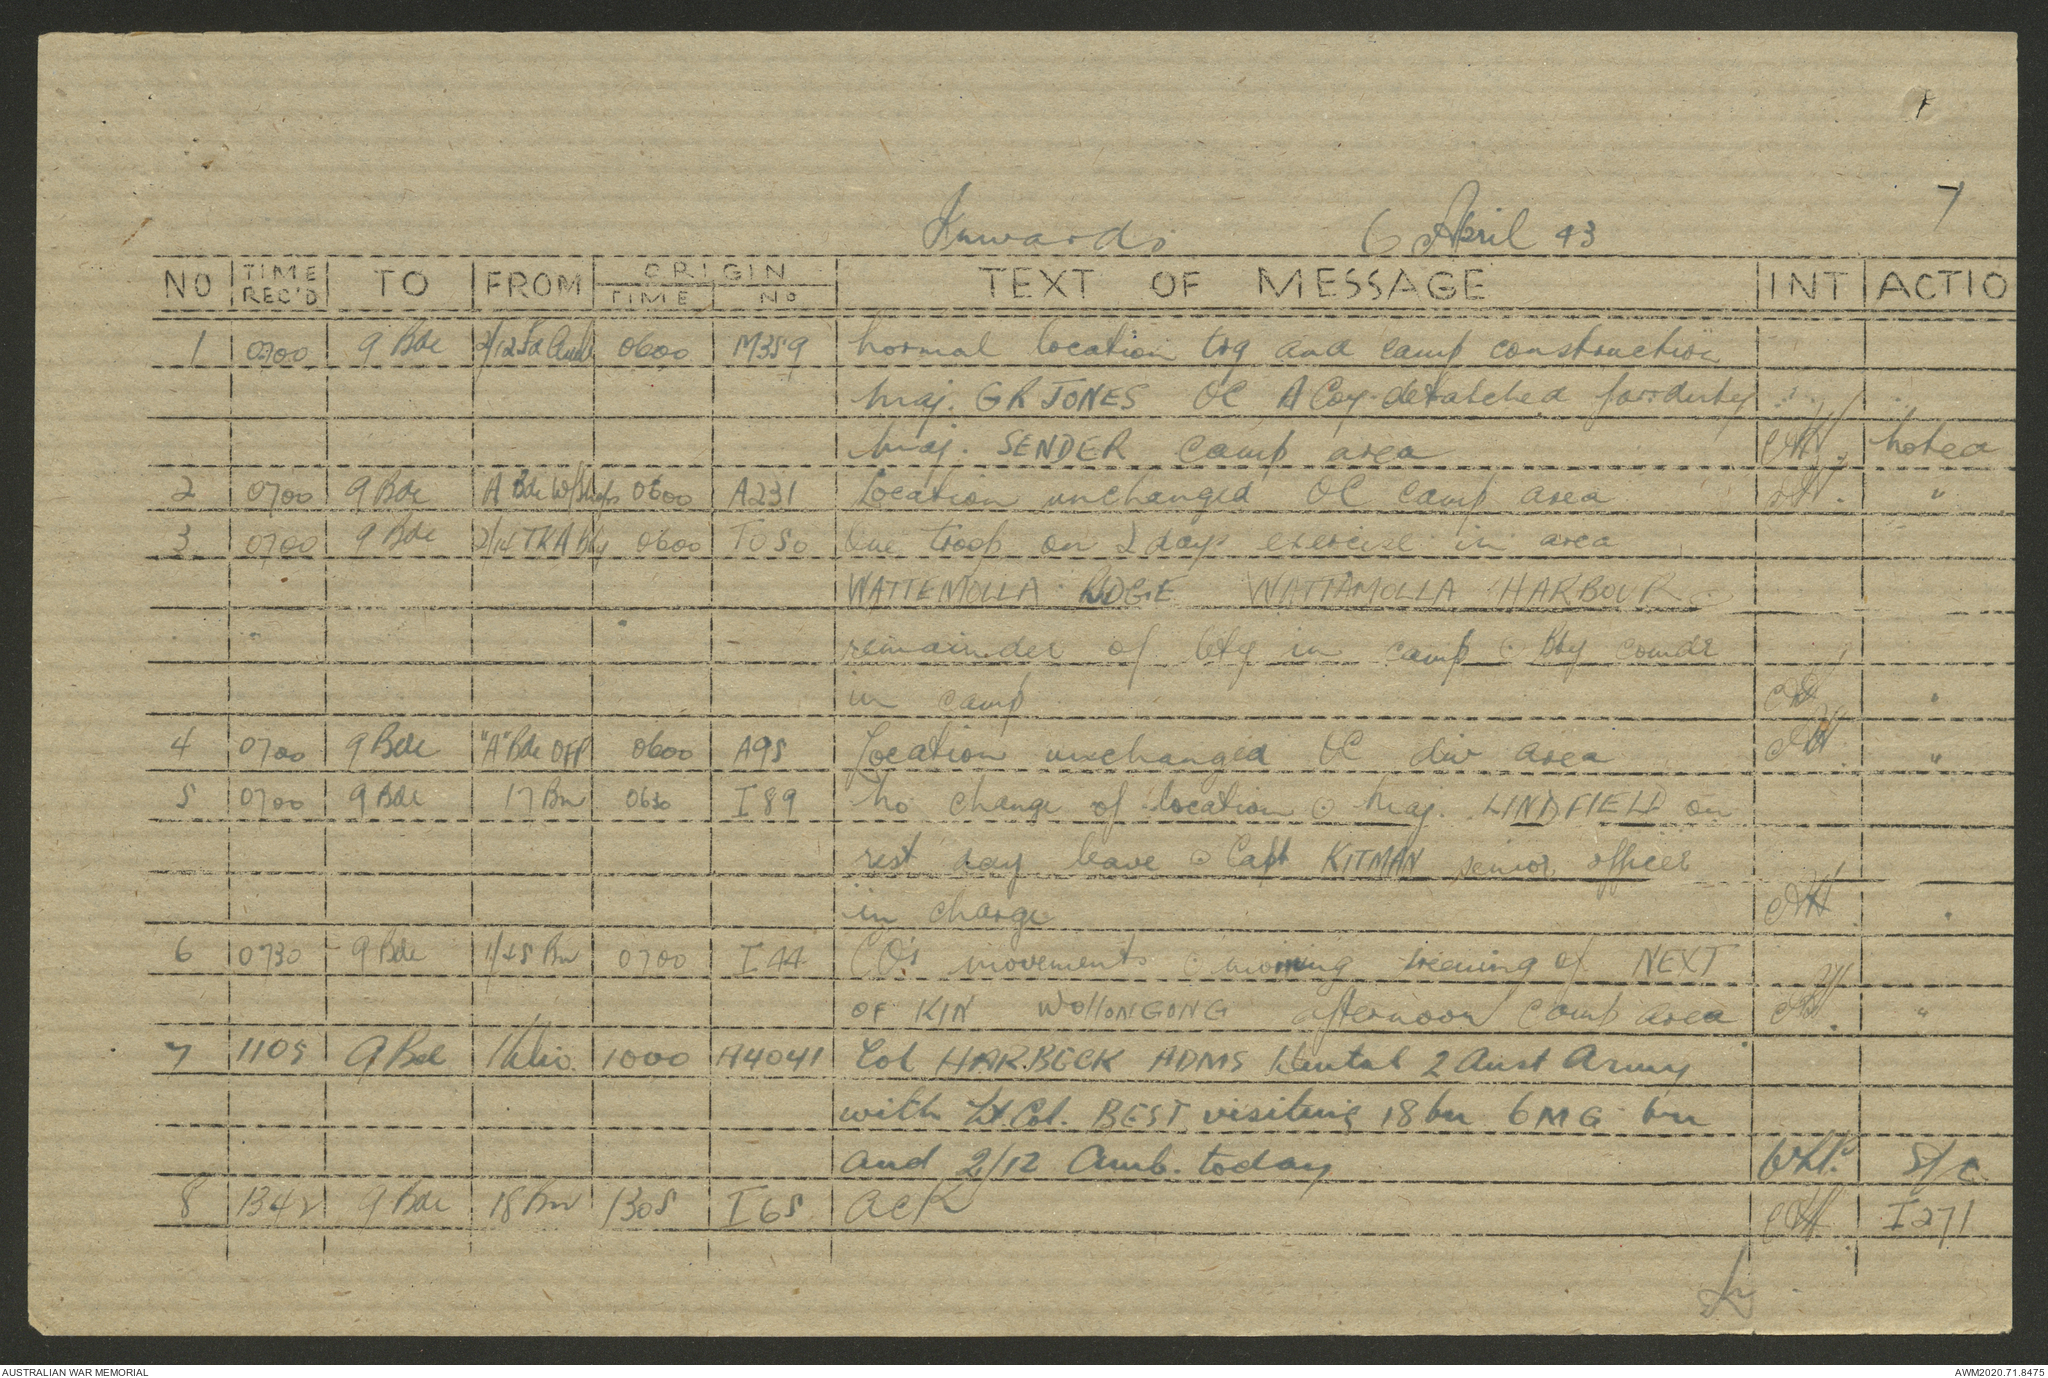 7
Inwards 6 April 43
NO TIME REC'D TO FROM ORIGIN TIME NO TEXT OF MESSAGE INT ACTIO
1 0700 9 Bde 2/12 Fd Amb 0600 M359 Normal location trg and camp construction
Maj. GR JONES OC A Coy detatched for duty
Maj. SENDER camp area noted
2 0700 9 Bde A Bde W/Shops 0600 A231 Location unchanged OC camp area "
3 0700 9 Bde 0600 One troop on 2 day exercise in area
WATTEMOLLA RDGE WATTAMOLLA HARBOUR
remainder of bty in camp Bty comdr
in camp "
4 0700 9 Bde "A" Bde OFP 0600 A95 Location unchanged OC div area "
5 0700 9 Bde 17 Bn 0630 I 89 No change of location Maj. LINDFIELD on
rest day leave Capt KITMAN senior officer
in charge "
6 0730 9 Bde 1/45 Bn 0700 I 44 CO's movements morning of NEXT
OF KIN WOllONGONG afternoon camp area "
7 1105 9 Bde 1 Div 1000 A4041 Col HARBECK ADMS Dental 2 Aust Army
with Lt. Col. BEST visiting 18 bn 6 MG bn
and 2/12 Amb. today
8 1342 9 Bde 18 Bn 1305 I 65 ack I 271
AUSTRALIAN WAR MEMORIAL AWM2020.71.8475